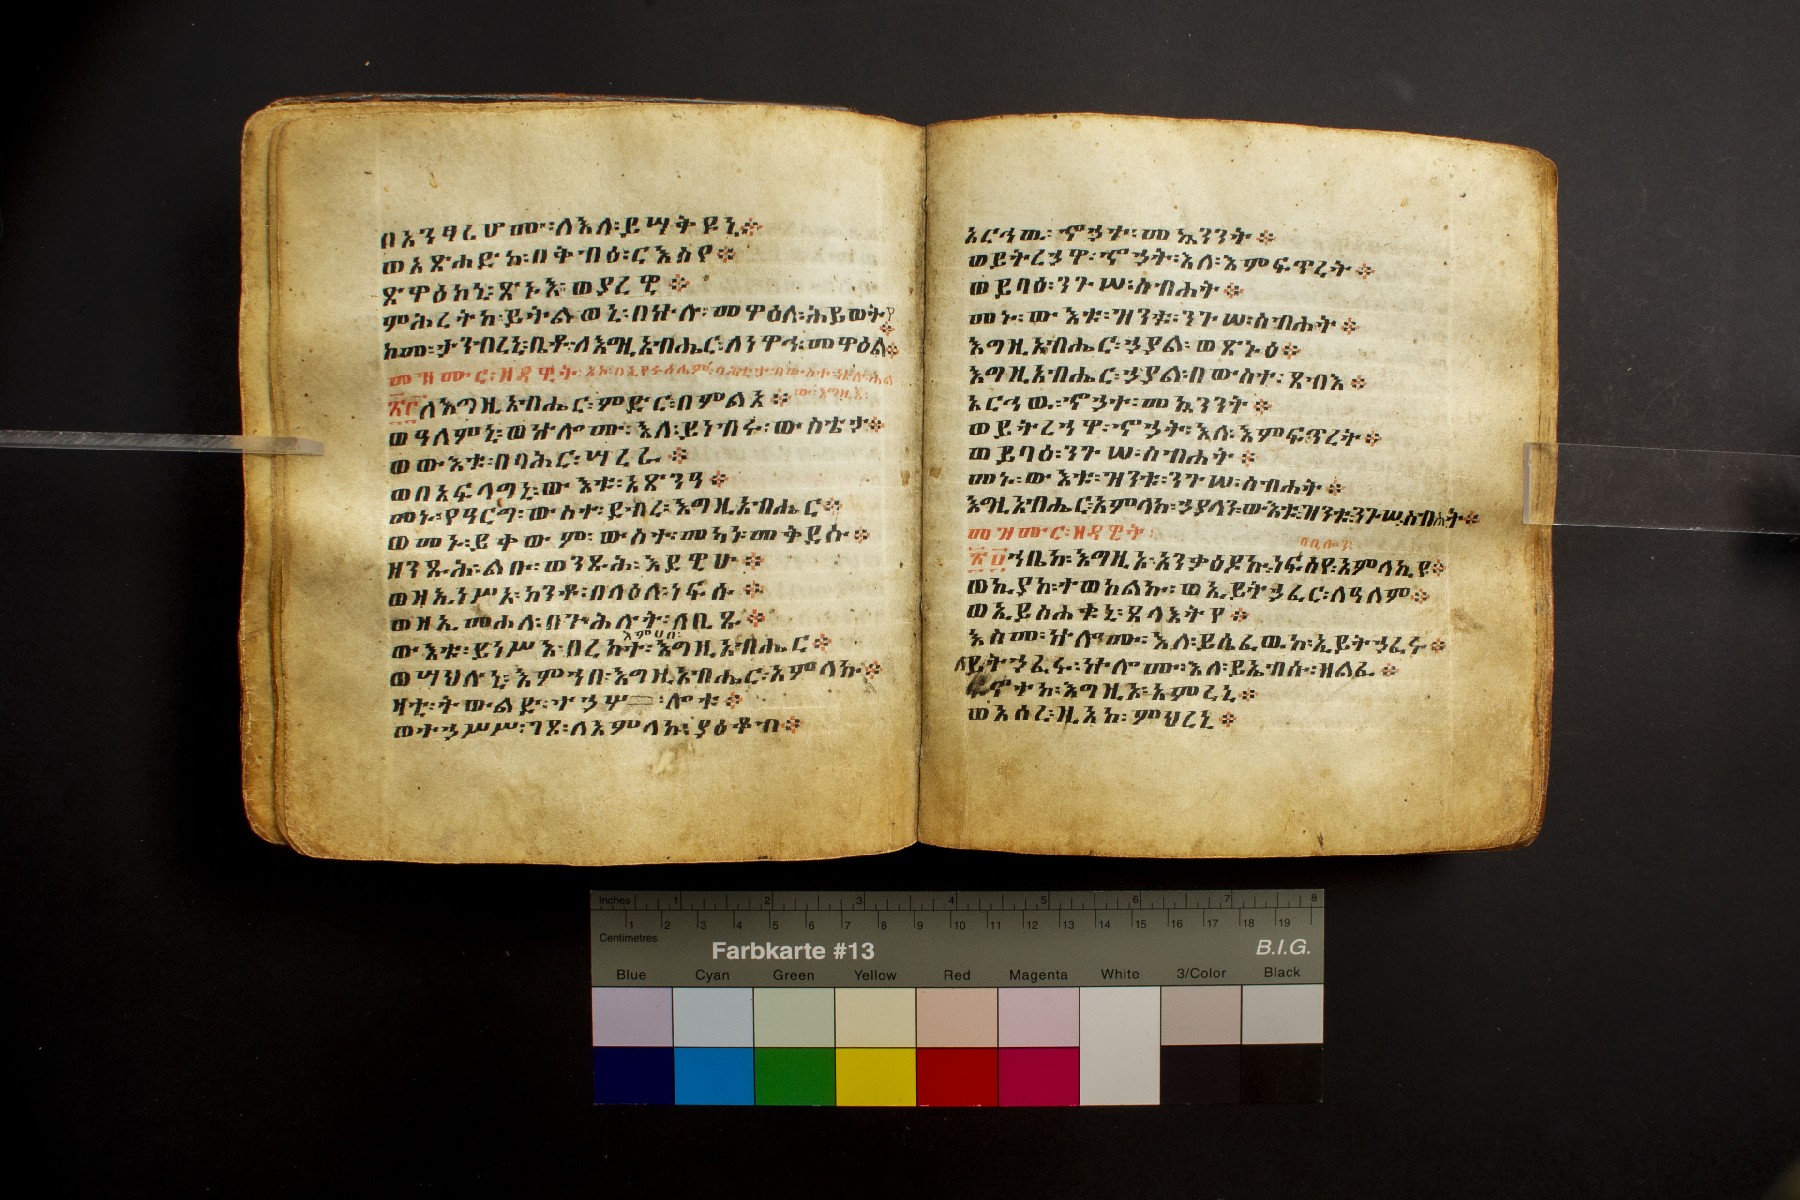 በአንፃረሆሙ፡ለእለ፡ይሣትዩኒ።
ወአጽሐድከ፡በቅብዕ፡ርእስየ።
ጽዋዕከኒ፡ጽኑእ፡ወያረዊ።
ምሕረትከ፡ይትልወኒ፡በኵሉ፡መዋዕለ፡ሕይወትየ።
ከመ፡ታንብረኒ፡ቤቶ፡ለእግዚአብሔር፡ለነዋኅ፡መዋዕል።
መዝሙር፡ዘዳዊት፡
፳፫ለእግዚአብሔር፡ምድር፡በምልአ።
ወዓለምኒ፡ወኵሎሙ፡እለ፡ይነብሩ፡ውስቴታ።
ወውእቱ፡በባሕር፡ሣረራ።
ወበአፍላግኒ፡ውእቱ፡አጽንዓ።
መኑ፡የዓርግ፡ውስተ፡ደብረ፡እግዚአብሔር።
ወመኑ፡ይቀውም፡ውስተ፡መካነ፡መቅደሱ።
ዘንጹሕ፡ልቡ፡ወንጹሕ፡እደዊሁ።
ወዘኢነሥአ፡ከንቶ፡በላዕለ፡ነፍሱ።
ወዘኢመሐለ፡በጕሕሉት፡ለቢጹ።
እምኀበ፡
ውእቱ፡ይነሥእ፡በረከት፡እግዚአብሔር።
ወሣህሉኒ፡እምኀበ፡እግዚአብሔር፡አምላኩ።
ዛቲ፡ትውልድ፡ተኃሦ፡ሎቱ።
ወተኃሥሥ፡ገጾ፡ለአምላከ፡ያዕቆብ።
አርኅዉ፡ኆኃተ፡መኳንንት።
ወይትረኃዋ፡ኆኃት፡እለ፡እምፍጥረት።
ወይባዕ፡ንጉሠ፡ስብሐት።
መኑ፡ውእቱ፡ዝንቱ፡ንጉሠ፡ስብሐት።
እግዚአብሔር፡ኃያል፡ወጽኑዕ።
እግዚአብሔር፡ኃያል፡በውስተ፡ጸብእ።
አርኅዉ፡ኆኃተ፡መኳንንት።
ወይትረኅዋ፡ኆኃት፡እለ፡እምፍጥረት።
ወይባዕ፡ንጉሠ፡ስብሐት።
መኑ፡ውእቱ፡ዝንቱ፡ንጉሠ፡ስብሐት።
እግዚአብሔር፡አምላከ፡ኃያላን፡ውእቱ፡ዝንቱ፡ንጉሠ፡ስብሐት።
መዝሙር፡ዘዳዊት፡
፳፬ኀቤከ፡እግዚኦ፡አንቃዕዶኩ፡ነፍስየ፡አምላኪየ።
ወኪያከ፡ተወከልኩ፡ወኢይትኃፈር፡ለዓለም።
ወኢይስሐቁኒ፡ጸላእትየ።
እስመ፡ኵሎሙ፡እለ፡ይሴፈዉከ፡ኢይትኃፈሩ።
ለይትኃፈሩ፡ኵሎሙ፡እለ፡ይኤብሱ፡ዘልፈ።
ፍኖተከ፡እግዚኦ፡አምረኒ።
ወአሰረ፡ዚአከ፡ምህረኒ።
Inches 1 2 3 4 5 6 7 8
1 2 3 4 5 6 7 8 9 10 11 12 13 14 15 16 17 18 19
Centimetres
Farbkarte #13 B.I.G.
Blue Cyan Green Yellow Red Magenta White 3/Color Black